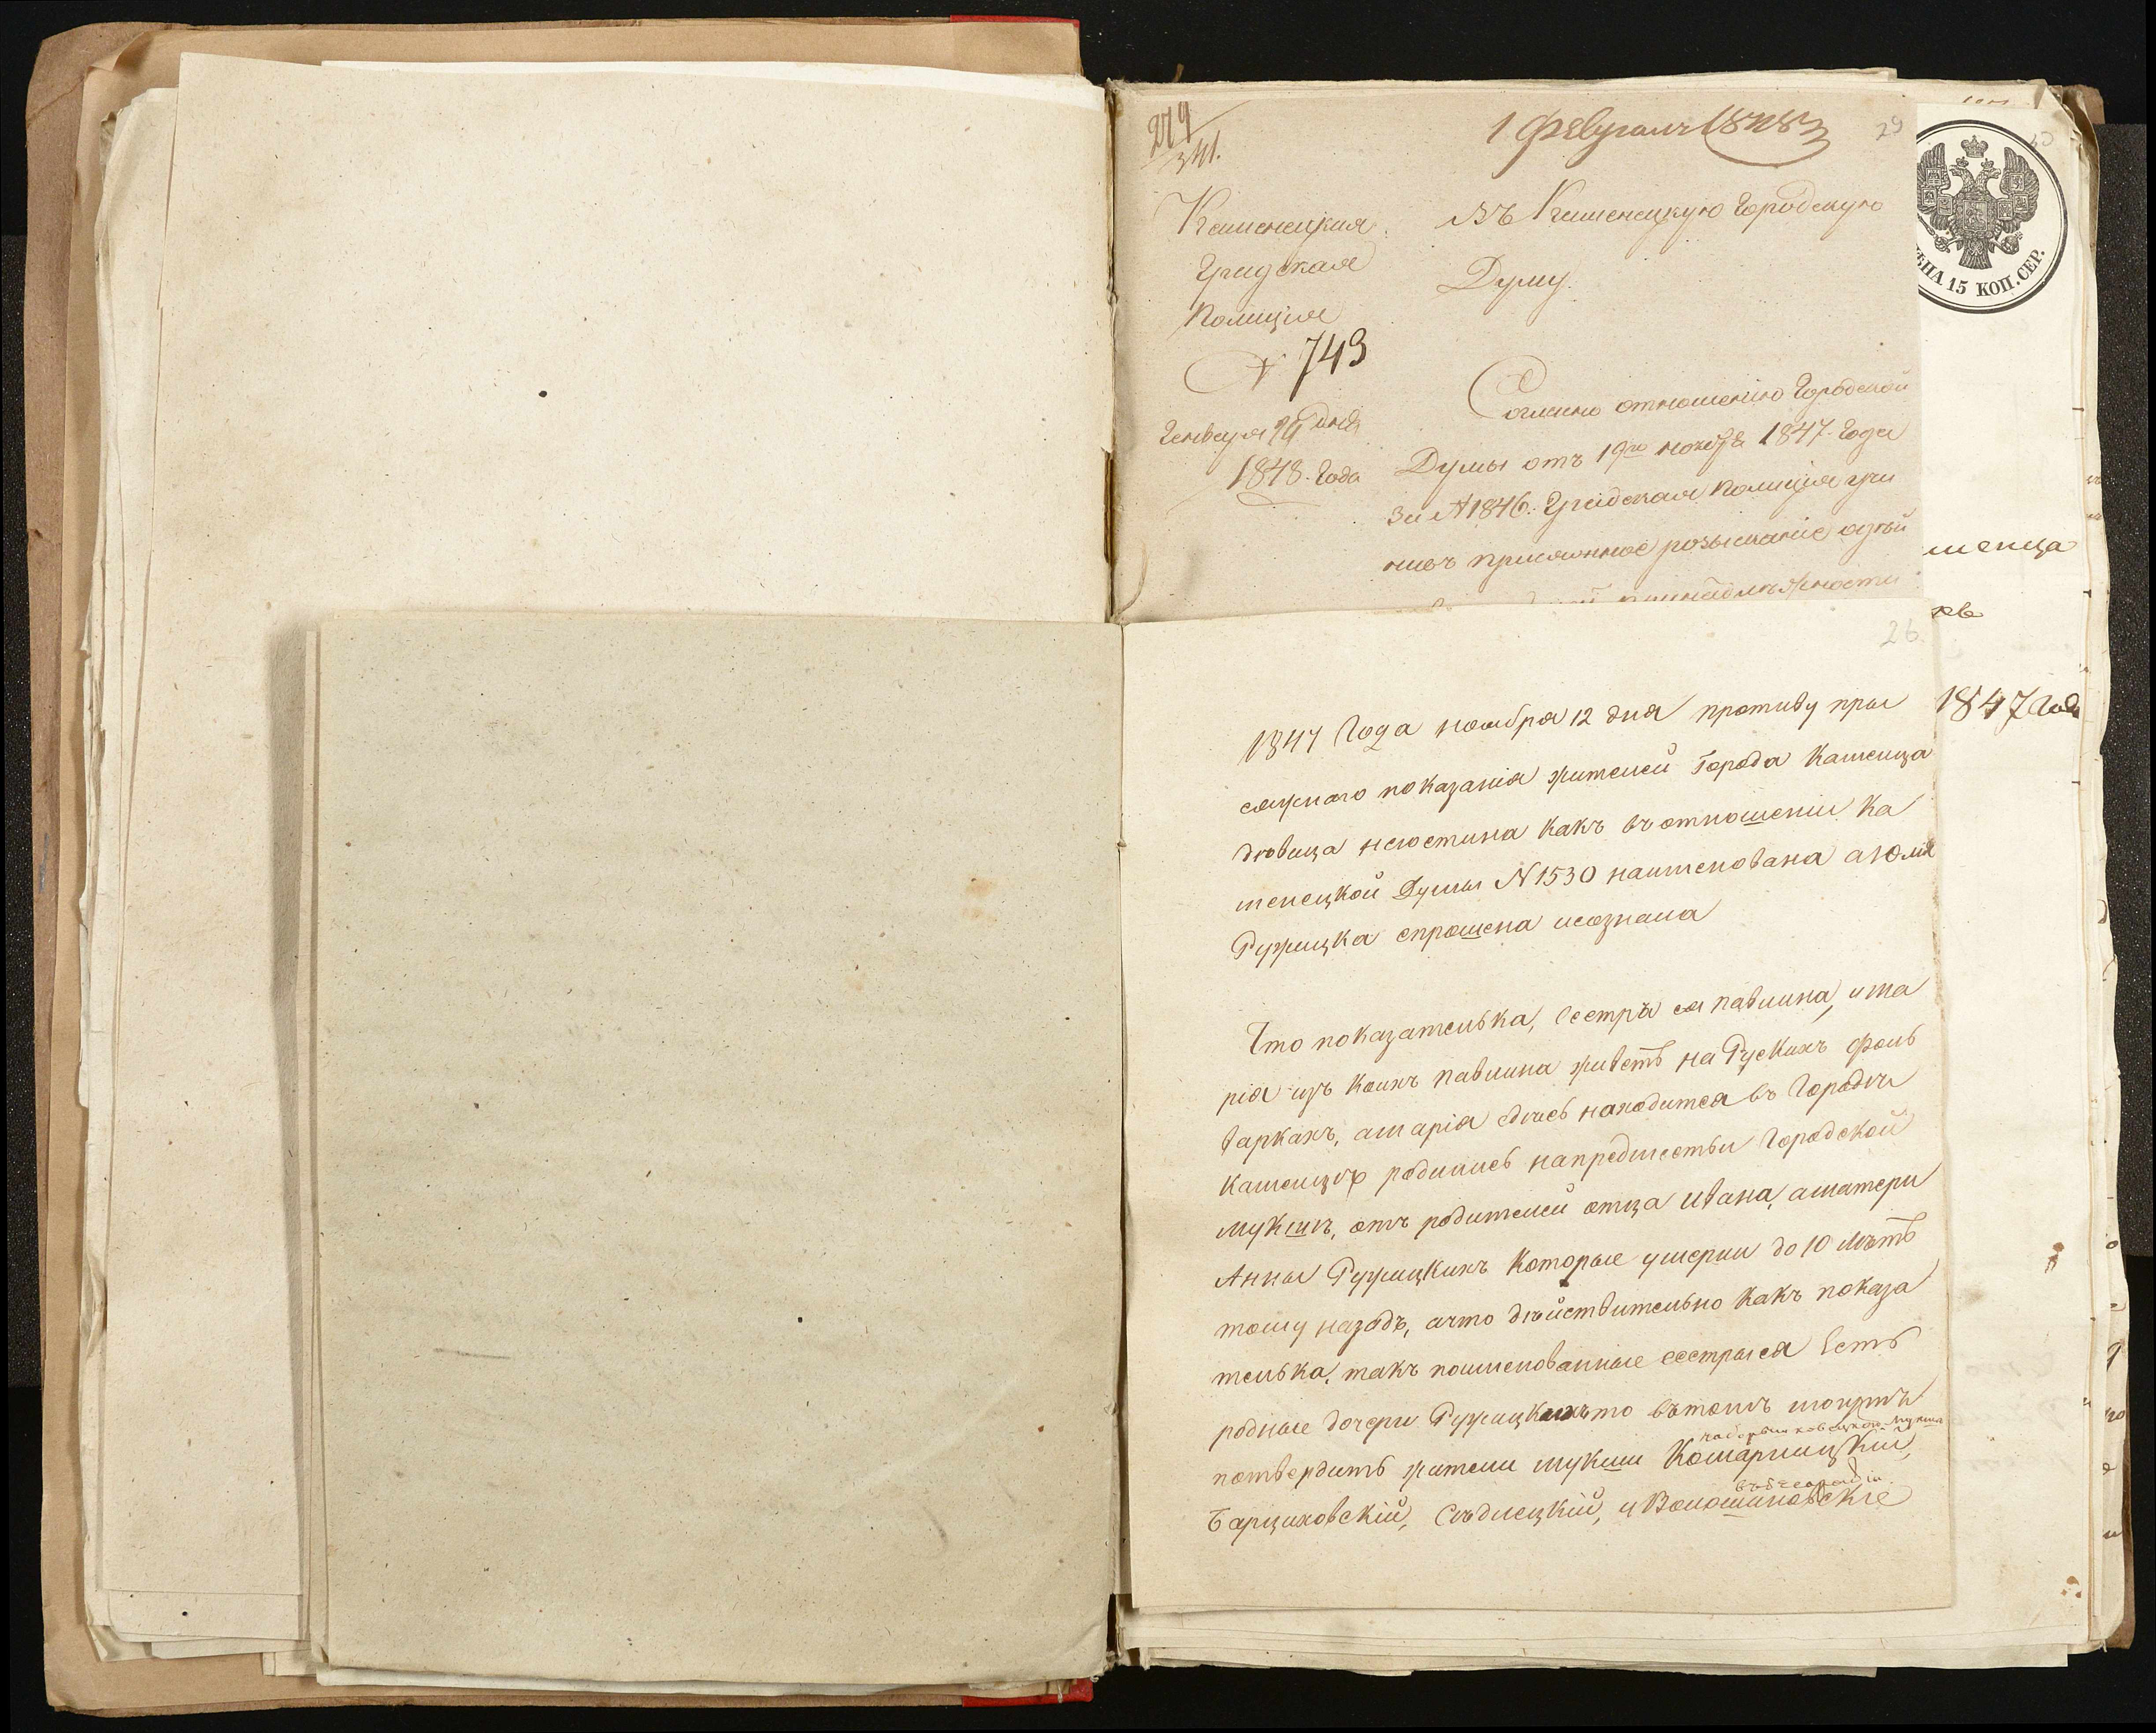 1 Февраля 1848
29
Каменецкая
Градская
Полиция
№ 743
Генваря 29 дня
1848. Года
Въ Каменецкую Городскую
Думу.
Согласно отношенію Городской
Думы отъ 19го ноября 1847. Года
за № 1846. Градская Полиція учи
нивъ присяжное розысканіе
принадлѣжности
ЦѢНА 15 КОП. СЕР.
менца
1847 Года
26
1847 Года ноября 12 дня противу при
сяжнаго показанія жителей Города Каменца
дѣвица неюстина какъ въ отношеніи Ка
менецкой Думы № 1530 наименована а Юлія
Ружицка спрошена и сознала
Что показателька, сестра ея павлина, и ма
рія изъ коихъ павлина живетъ на Рускихъ фоль
варкахъ, а марія здѣсь находится въ Городѣ
Каменцѣ родились на предместьи Городской
мукшѣ, отъ родителей отца Ивана, а матери
Анны Ружицкихъ которые умерли до 10 лѣтъ
тому назадъ, а что дѣйствительно какъ показа
телька, такъ поименованные сестры ея Есть
родные дочери Ружицкихъ то въ томъ могутъ
потвердить жители мукши Комарницкій,
Барциховскій, Сѣдлецкій, и Волошиновскіе